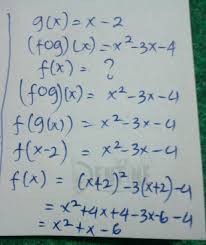 g(x) = x - 2
(fog)(x) = x²-3x-4
f(x) = ?
(fog)(x) = x²-3x-4
f(g(x)) = x²-3x-4
f(x-2) = x²-3x-4
f(x) = (x+2)²-3(x+2)-4
= x²+4x+4-3x-6-4
= x²+x-6